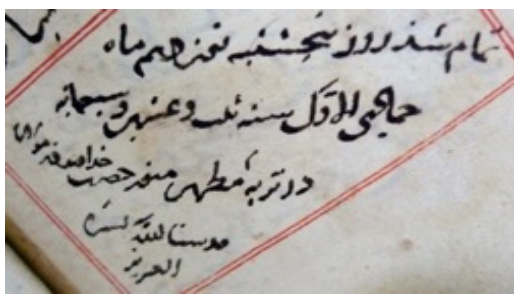 تمام شد روز پنجشنبه نوزدهم ماه
جمادی الاول سنه ثلث و عشرین و سبعمائه
در تربهٔ مطهر منور حضرت خداوندگار مولانا
قدسنا الله بسره
العزیز